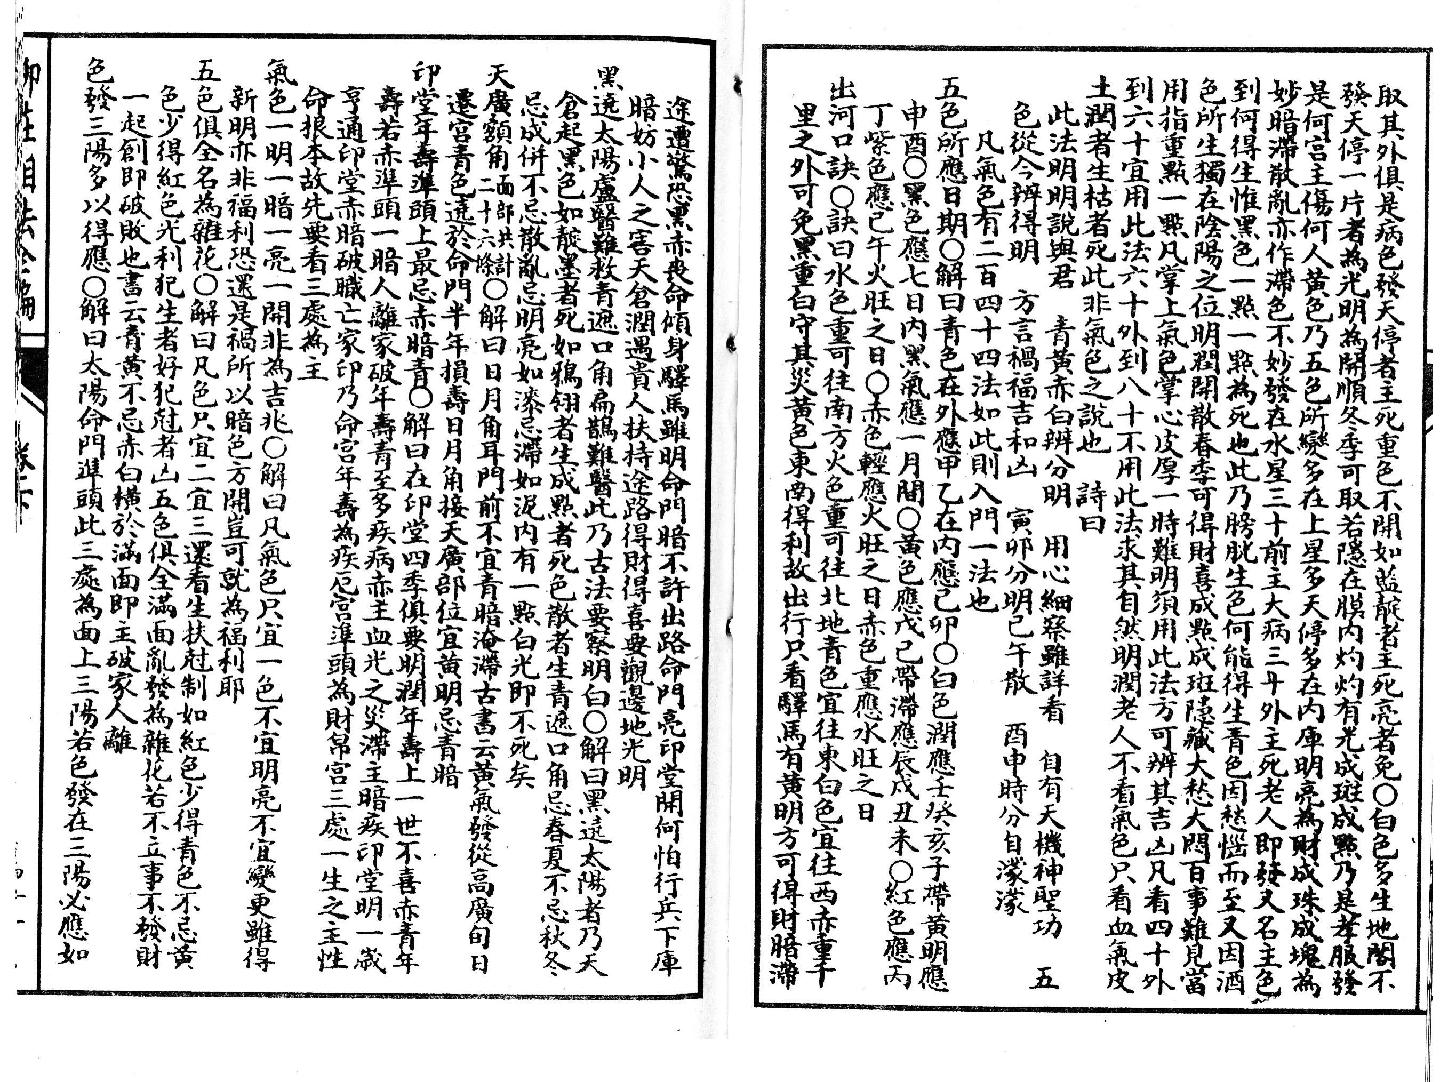 取其外俱是病色發天停者主死重色不開如藍靛者主死亮者免〇白色多生地閣不
發天停一片者為光明為開順冬季可取若隱在膜内灼灼有光成斑成點乃是孝服發
是何宮主傷何人黃色乃五色所變多在上星多天停多在内庫明亮為財成珠成塊為
妙暗滯散亂亦作滯色不妙發在水星三十前主大病三十外主死老人即發又名主色
到何得生惟黑色一點一點為死也此乃膀胱生色何能得生青色因愁惱而至又因酒
色所生獨在陰陽之位明潤開散春季可得財喜成點成斑隱藏大愁大悶百事難見當
用指重點一點凡掌上氣色掌心皮厚一時難明須用此法方可辨其吉凶凡看四十外
到六十宜用此法六十外到八十不用此法求其自然明潤老人不看氣色只看血氣皮
土潤者生枯者死此非氣色之說也 詩曰
此法明明說與君 青黃赤白辨分明 用心細察雖詳看 自有天機神聖功 五
色從今辨得明 方言禍福吉和凶 寅卯分明巳午散 酉申時分自濛濛
凡氣色有二百四十四法如此則入門一法也
五色所應日期〇解曰青色在外應甲乙在内應己卯〇白色潤應壬癸亥子帶黃明應
申酉〇黑色應七日内黑氣應一月間〇黃色應戊己帶滯應辰戌丑未〇紅色應丙
丁紫色應巳午火旺之日〇赤色輕應火旺之日赤色重應水旺之日
出河口訣〇訣曰水色重可往南方火色重可往北地青色宜往東白色宜往西赤重千
里之外可免黑重白守其災黃色東南得利故出行只看驛馬有黃明方可得財暗滯
途遭驚恐黑赤喪命傾身驛馬雖明命門暗不許出路命門亮印堂開何怕行兵下庫
暗妨小人之害天倉潤遇貴人扶持途路得財得喜要觀邊地光明
黑遶太陽盧醫難救青遮口角扁鵲難醫此乃古法要察明白〇解曰黑遶太陽者乃天
倉起黑色如靛墨者死如鴉翎者生成點者死色散者生青遮口角忌春夏不忌秋冬
忌成併不忌散亂忌明亮如漆忌滯如泥内有一點白光即不死矣
天廣額角面部共計二十六條〇解曰日月角耳門前不宜青暗淹滯古書云黃氣發從高廣旬日
遷宮青色遶於命門半年損壽日月角接天廣部位宜黃明忌青暗
印堂年壽準頭上最忌赤暗青〇解曰在印堂四季俱要明潤年壽上一世不喜赤青年
壽若赤準頭一暗人離家破年壽青至多疾病赤主血光之災滯主暗疾印堂明一歲
亨通印堂赤暗破職亡家印乃命宮年壽為疾厄宮準頭為財帛宮三處一生之主性
命根本故先要看三處為主
氣色一明一暗一亮一開非為吉兆〇解曰凡氣色只宜一色不宜明亮不宜變更雖得
新明亦非福利恐還是禍所以暗色方開豈可就為福利耶
五色俱全名為雜花〇解曰凡色只宜二宜三還看生扶尅制如紅色少得青色不忌黃
色少得紅色光利犯生者好犯尅者凶五色俱全滿面亂發為雜花若不立事不發財
一起創即破敗也書云青黃不忌赤白橫於滿面即主破家人離
色發三陽多以得應〇解曰太陽命門準頭此三處為面上三陽若色發在三陽必應如
柳莊相法全編
卷下